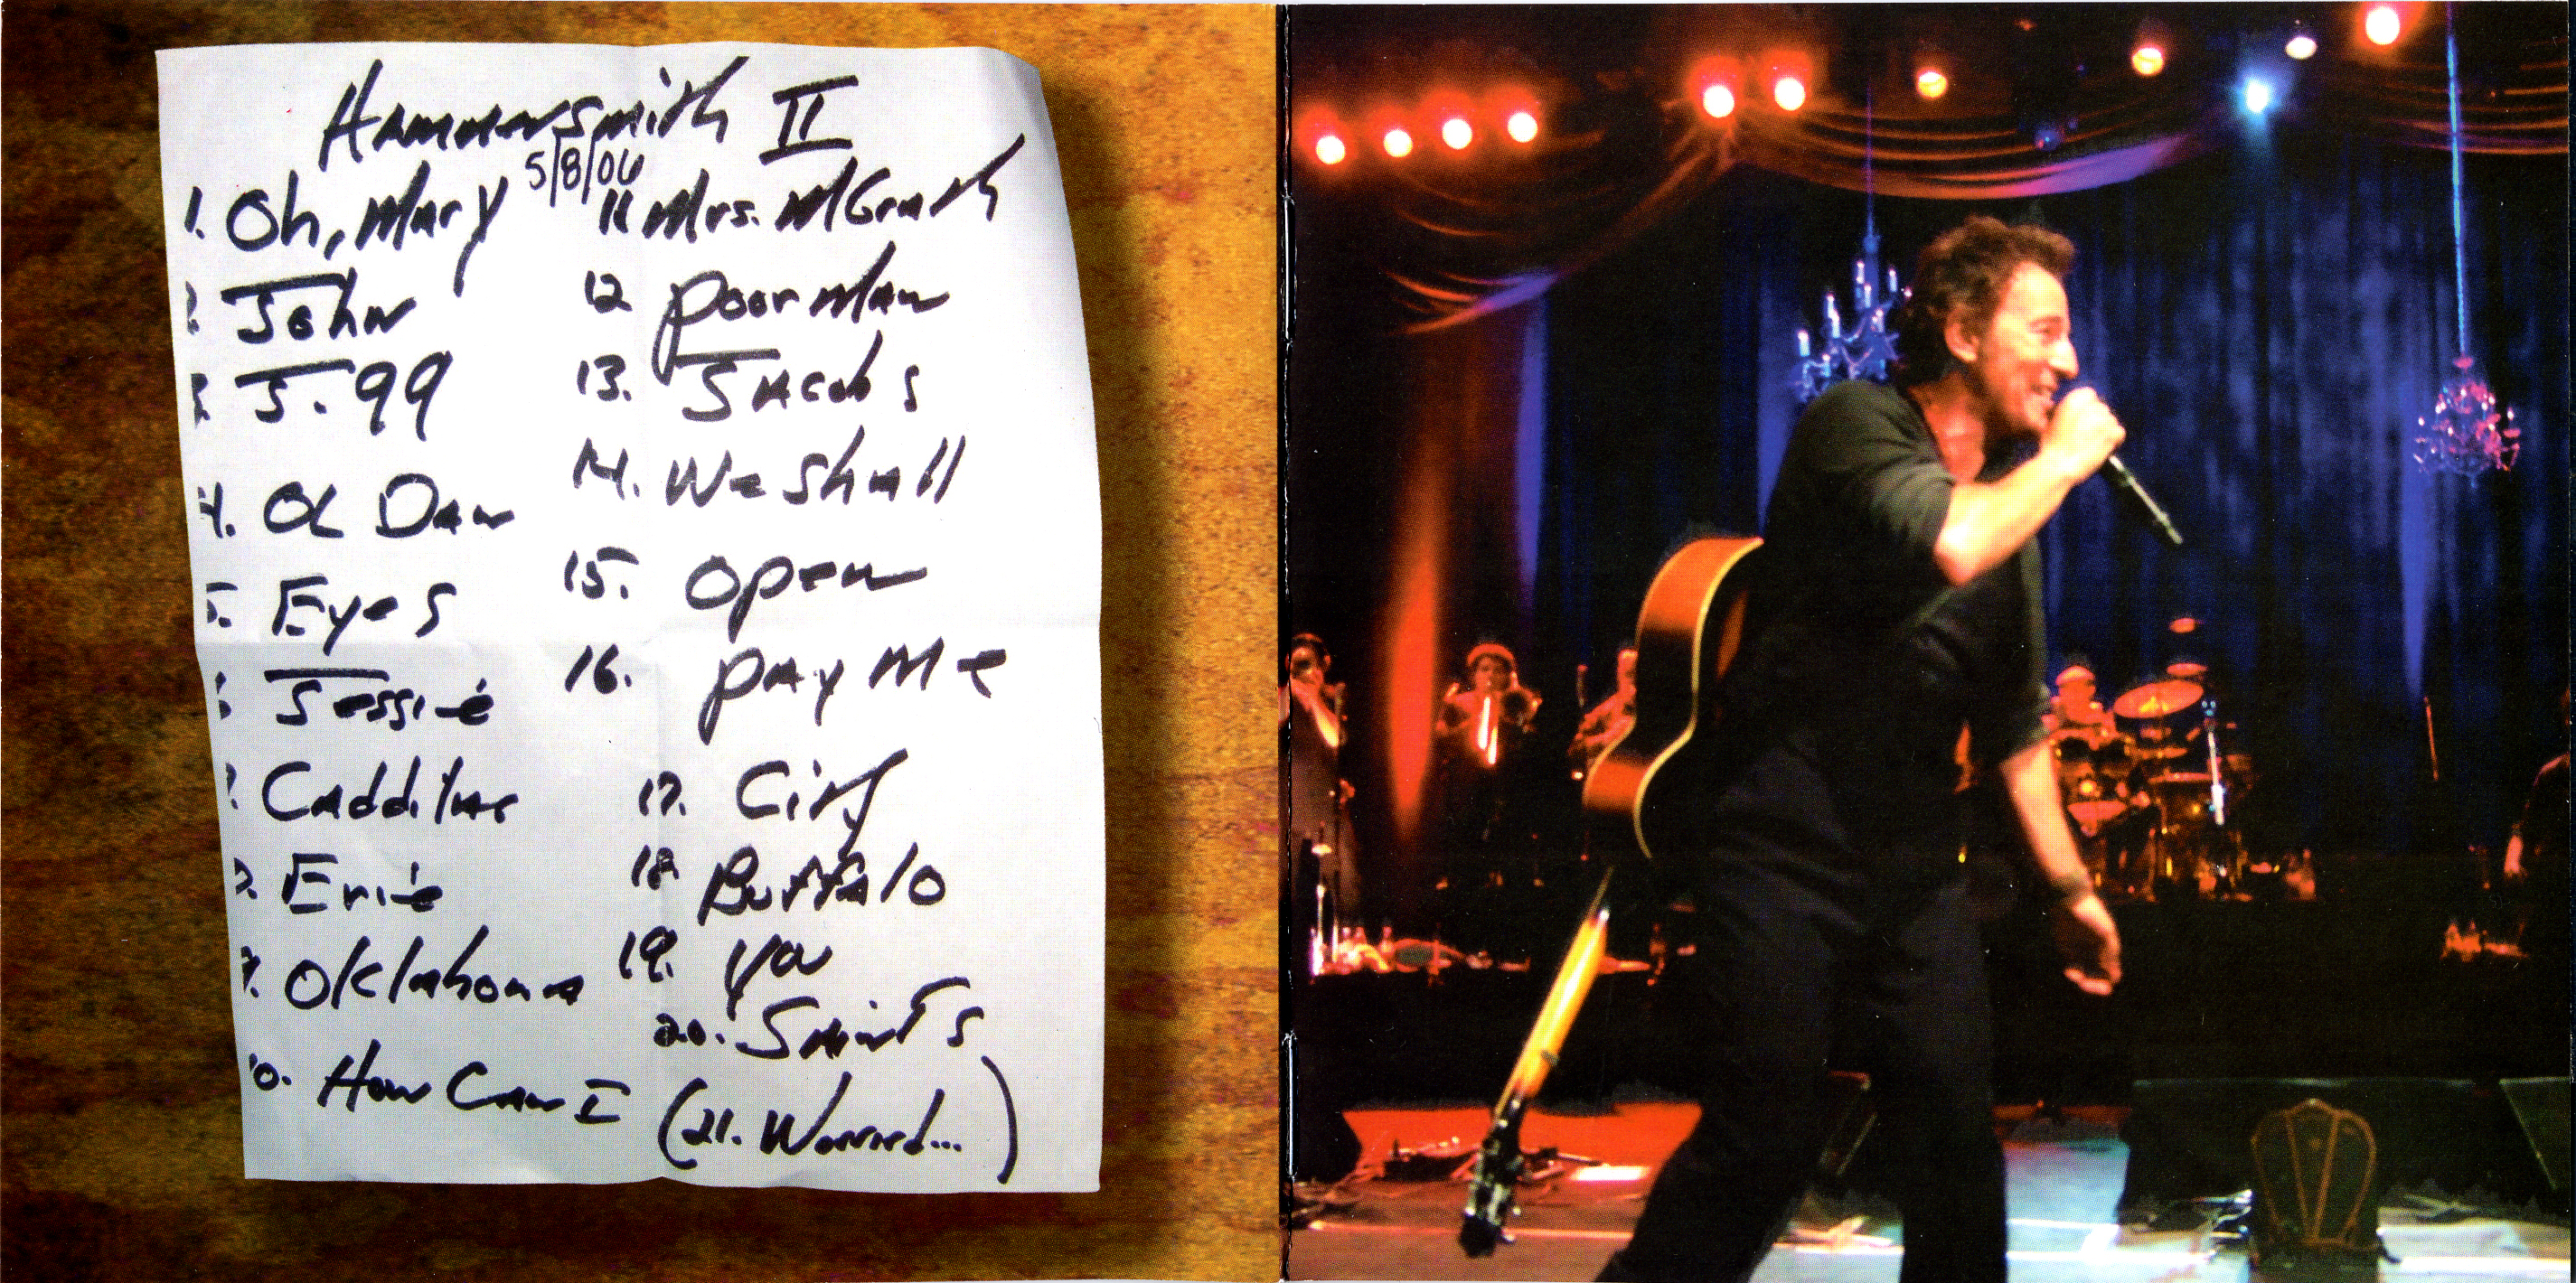 Hammersmith II
5/8/06
1. Oh, Mary
2. John
3. J. 99
4. OL Dan
5. Eyes
6. Jessie
7. Caddilac
8. Erie
9. Oklahoma
10. How Can I
11 Mrs. McGrath
12 Poor Man
13. Jacobs
14. We Shall
15. Open
16. Pay Me
17. City
18. Buffalo
19. You
20. Saints
(21. Worried...)